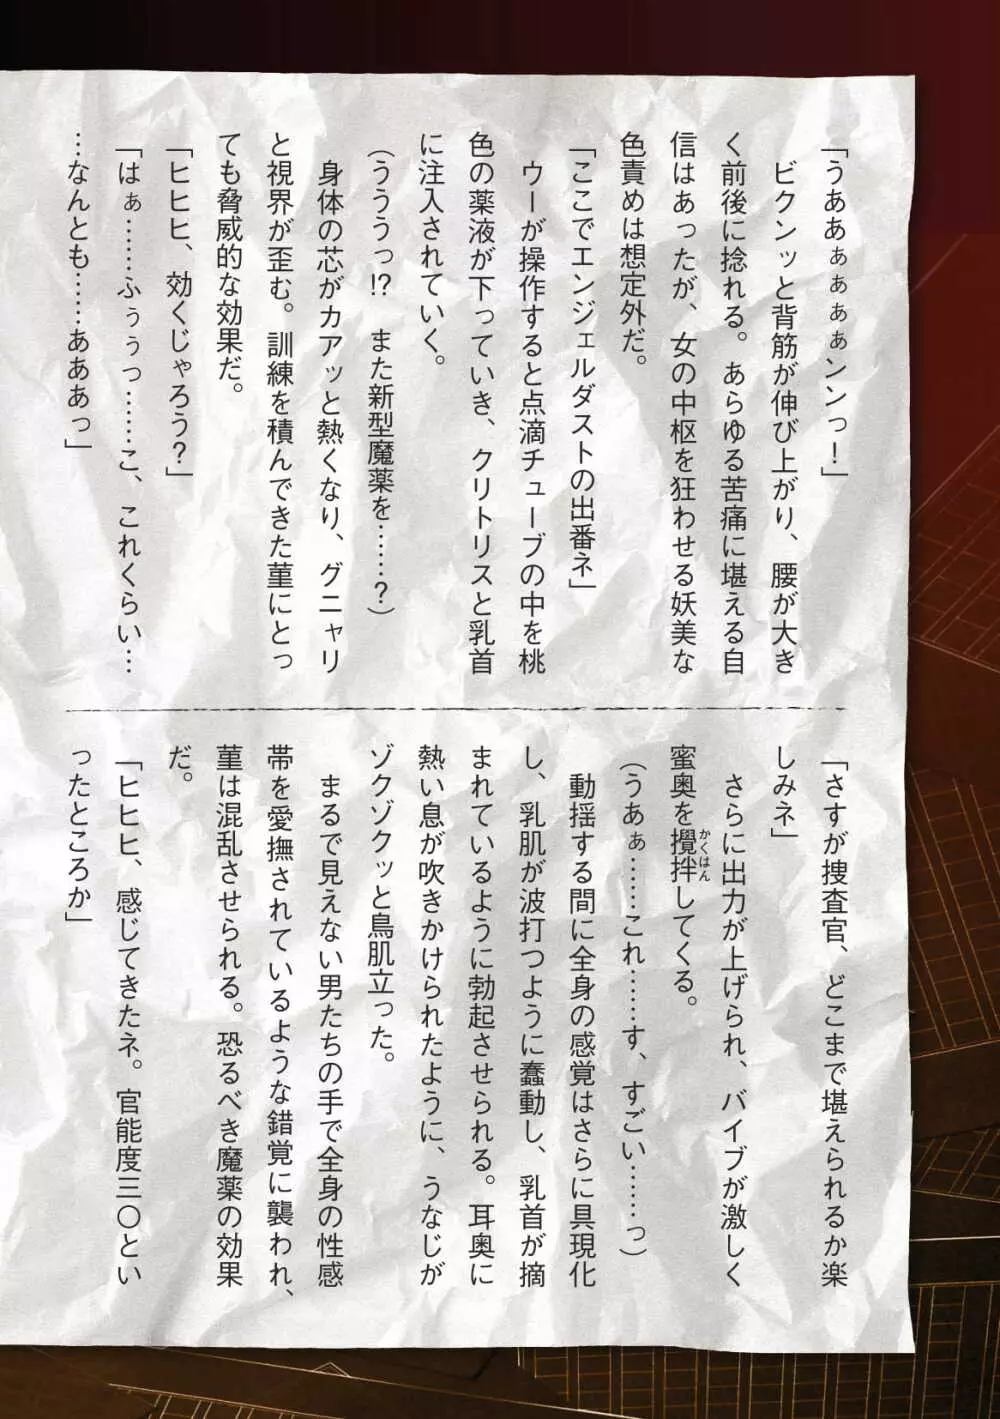 「うああぁぁぁぁンンっ！」
ビクンッと背筋が伸び上がり、腰が大き
く前後に捻れる。あらゆる苦痛に堪える自
信はあったが、女の中枢を狂わせる妖美な
色責めは想定外だ。
「ここでエンジェルダストの出番ネ」
ウーが操作すると点滴チューブの中を桃
色の薬液が下っていき、クリトリスと乳首
に注入されていく。
（うううっ!?　また新型魔薬を……？）
身体の芯がカアッと熱くなり、グニャリ
と視界が歪む。訓練を積んできた菫にとっ
ても脅威的な効果だ。
「ヒヒヒ、効くじゃろう？」
「はぁ……ふぅうっ……こ、これくらい…
…なんとも……あああっ」
「さすが捜査官、どこまで堪えられるか楽
しみネ」
さらに出力が上げられ、バイブが激しく
蜜奥を攪拌してくる。
かくはん
（うあぁ……これ……す、すごい……っ）
動揺する間に全身の感覚はさらに具現化
し、乳肌が波打つように蠢動し、乳首が摘
まれているように勃起させられる。耳奥に
熱い息が吹きかけられたように、うなじが
ゾクゾクッと鳥肌立った。
まるで見えない男たちの手で全身の性感
帯を愛撫されているような錯覚に襲われ、
菫は混乱させられる。恐るべき魔薬の効果
だ。
「ヒヒヒ、感じてきたネ。官能度三〇とい
ったところか」